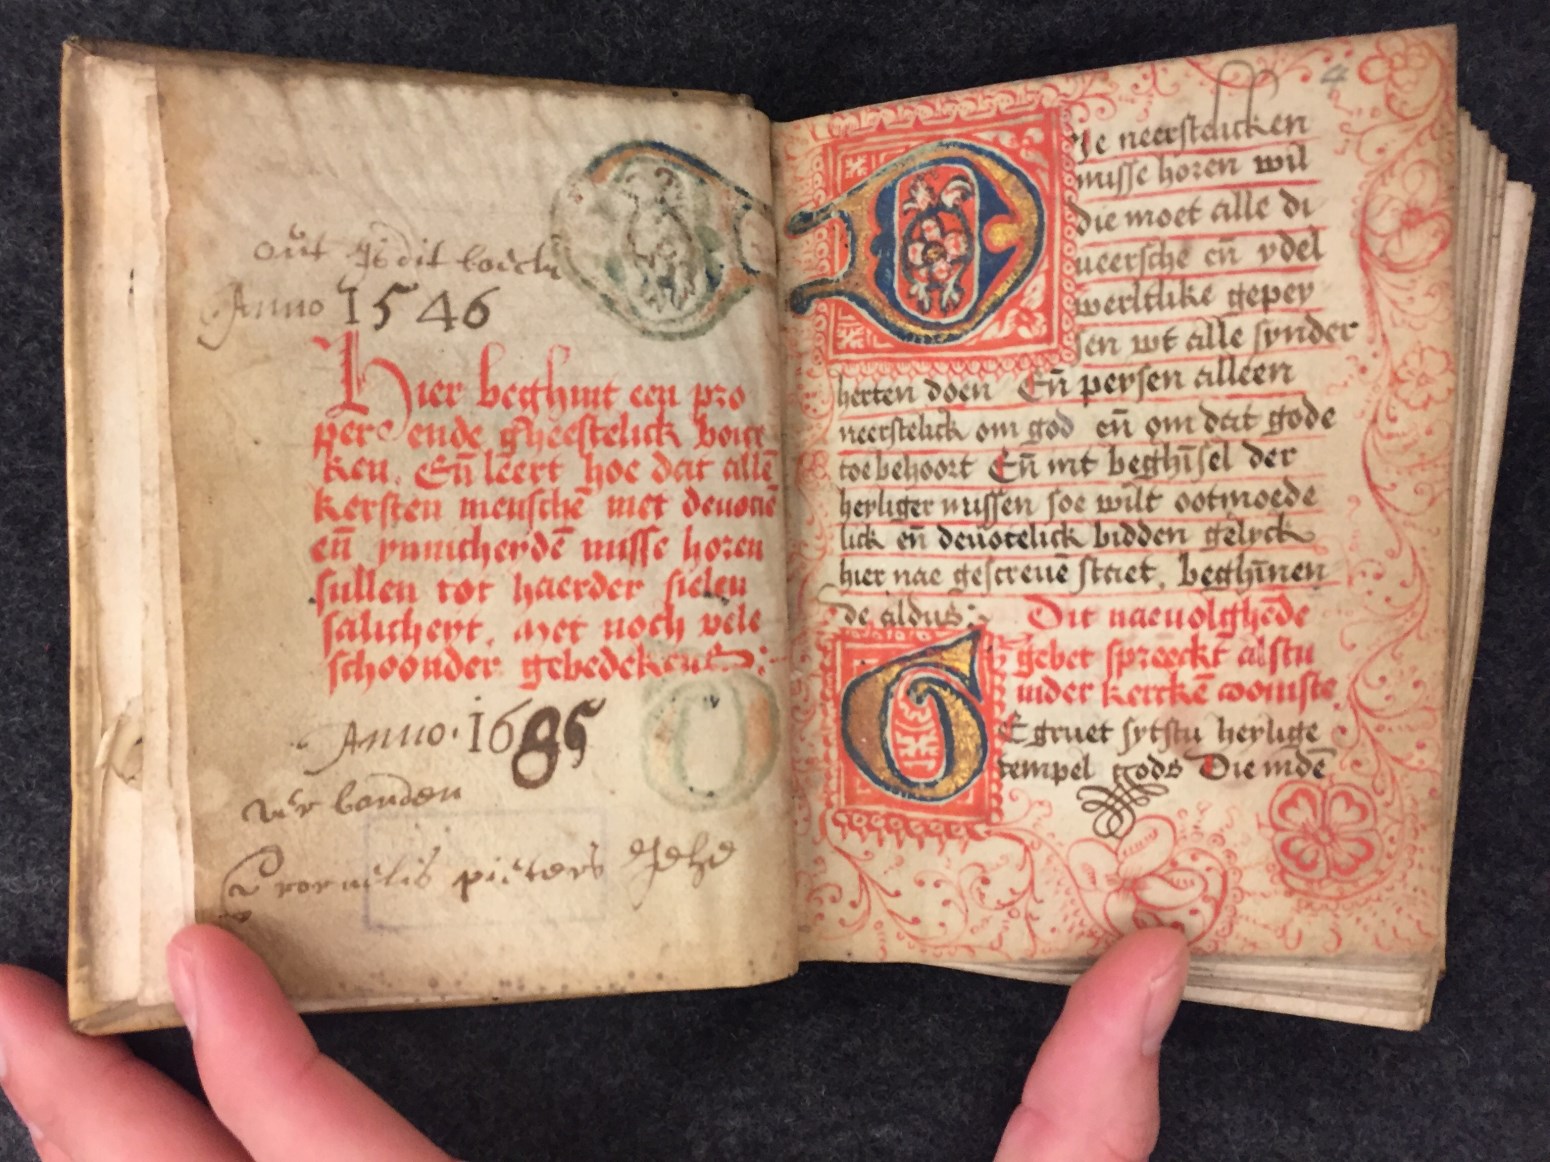 out is dit boeck
Anno 1546
Hier beghint een pro
pere ende gheestelick boics
ken. Eñ leert hoe dat allē
kersten menschē met deuotiē
eñ ynnicheydē misse horen
sullen tot haerder sielen
salicheyt. Met noch vele
schoonder gebedekens:
Anno. 1685
ver bonden
Cornelis pieters
4
Die neerstelicken
misse horen wil
die moet alle di
ueersche eñ ydel
werltlike gepey
sen wt alle synder
herten doen Eñ peysen alleen
neerstelick om god eñ om dat gode
toebehoort Eñ int beghīsel der
heyliger missen soe wilt ootmoede
lick eñ deuotelick bidden gelyck
hier nae gescreuē staet. beghīnen
de aldus:
Dit naeuolghēde
gebet spreeckt alstu
inder kerckē coomste
GEgruet sytstu heylige
tempel gods Die indē